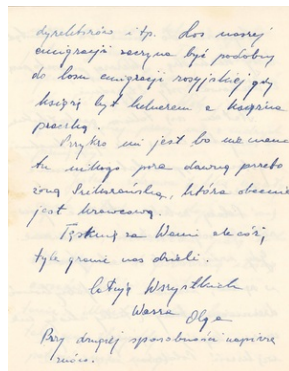 dyrektorów itp. Los naszej
emigracji zaczyna być podobny
do losu emigracji rosyjskiej gdy
książę był kelnerem a księżna
praczką.
Przykro mi jest bo nie mam
tu nikogo poza dawną
żoną która obecnie
jest krawcową.
Tęsknię za Wami ale cóż,
tyle granic nas dzieli.
Całuję Wszystkich
Wasza
Olga
Przy drugiej sposobności napiszę
znów.